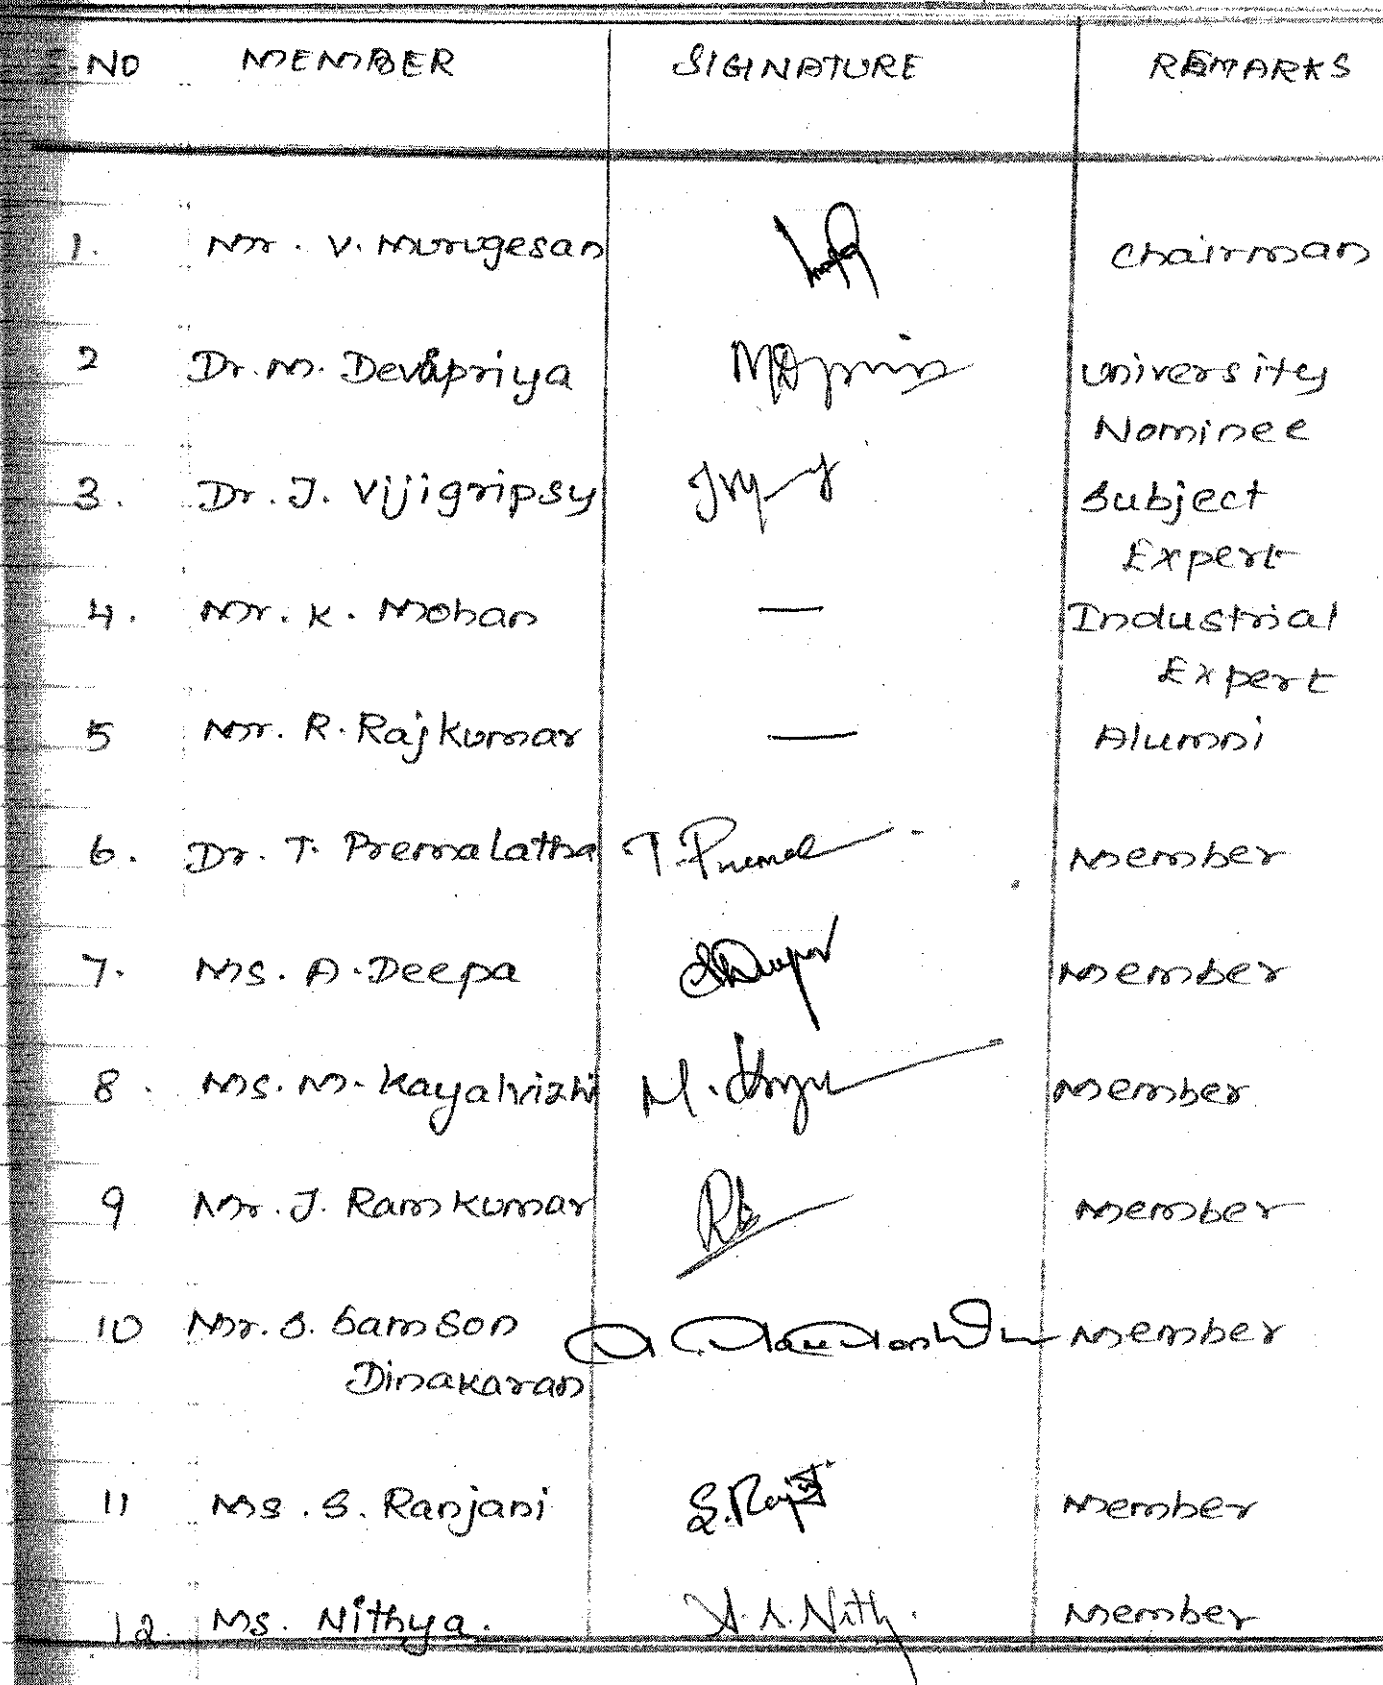 NO MEMBER SIGNATURE REMARKS
1. Mr. V. Murugesan Chairman
2 Dr. M. Devapriya University
Nominee
3. Dr. J. Vijigripsy Subject
Expert
4. Mr. K. Mohan — Industrial
Expert
5 Mr. R. Rajkumar — Alumni
6. Dr. T. Premalatha T. Premal Member
7. Ms. A. Deepa Member
8. Ms. M. Kayalvizhi Member
9 Mr. J. Ramkumar Member
10 Mr. S. Samson Member
Dinakaran
11 Ms. S. Ranjani Member
12. Ms. Nithya. Member